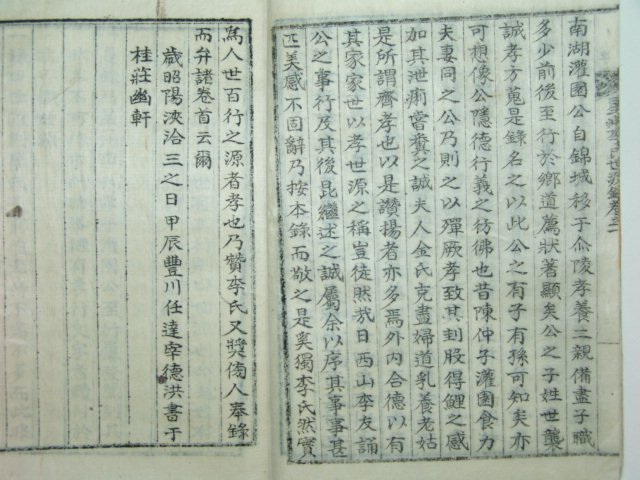 南湖灌園公自錦城移于尒陵孝養二親備盡子職
多少前後至行於鄉道薦狀著顯矣公之子姓世襲
誠孝方蒐是錄名之以此公之有子有孫可知矣亦
可想像公隱德行義之彷彿也昔陳仲子灌園食力
夫妻同之公乃則之以殫厥孝致其刲股得鯉之感
加其泄痢嘗糞之誠夫人金氏克盡婦道乳養老姑
是所謂齊孝也以是讚揚者亦多焉外內合德以有
其家家世以孝世源之稱豈徒然㢤日西山李友誦
公之事行及其後昆繼述之誠屬余以序其事事甚
匹美感不固辭乃按本錄而敬之是奚獨李氏然實
爲人世百行之源者孝也乃贊李氏又奬傍人奉錄
而弁諸卷首云爾
歲昭陽浹洽三之日甲辰豐川任達宰德洪書于
桂莊幽軒